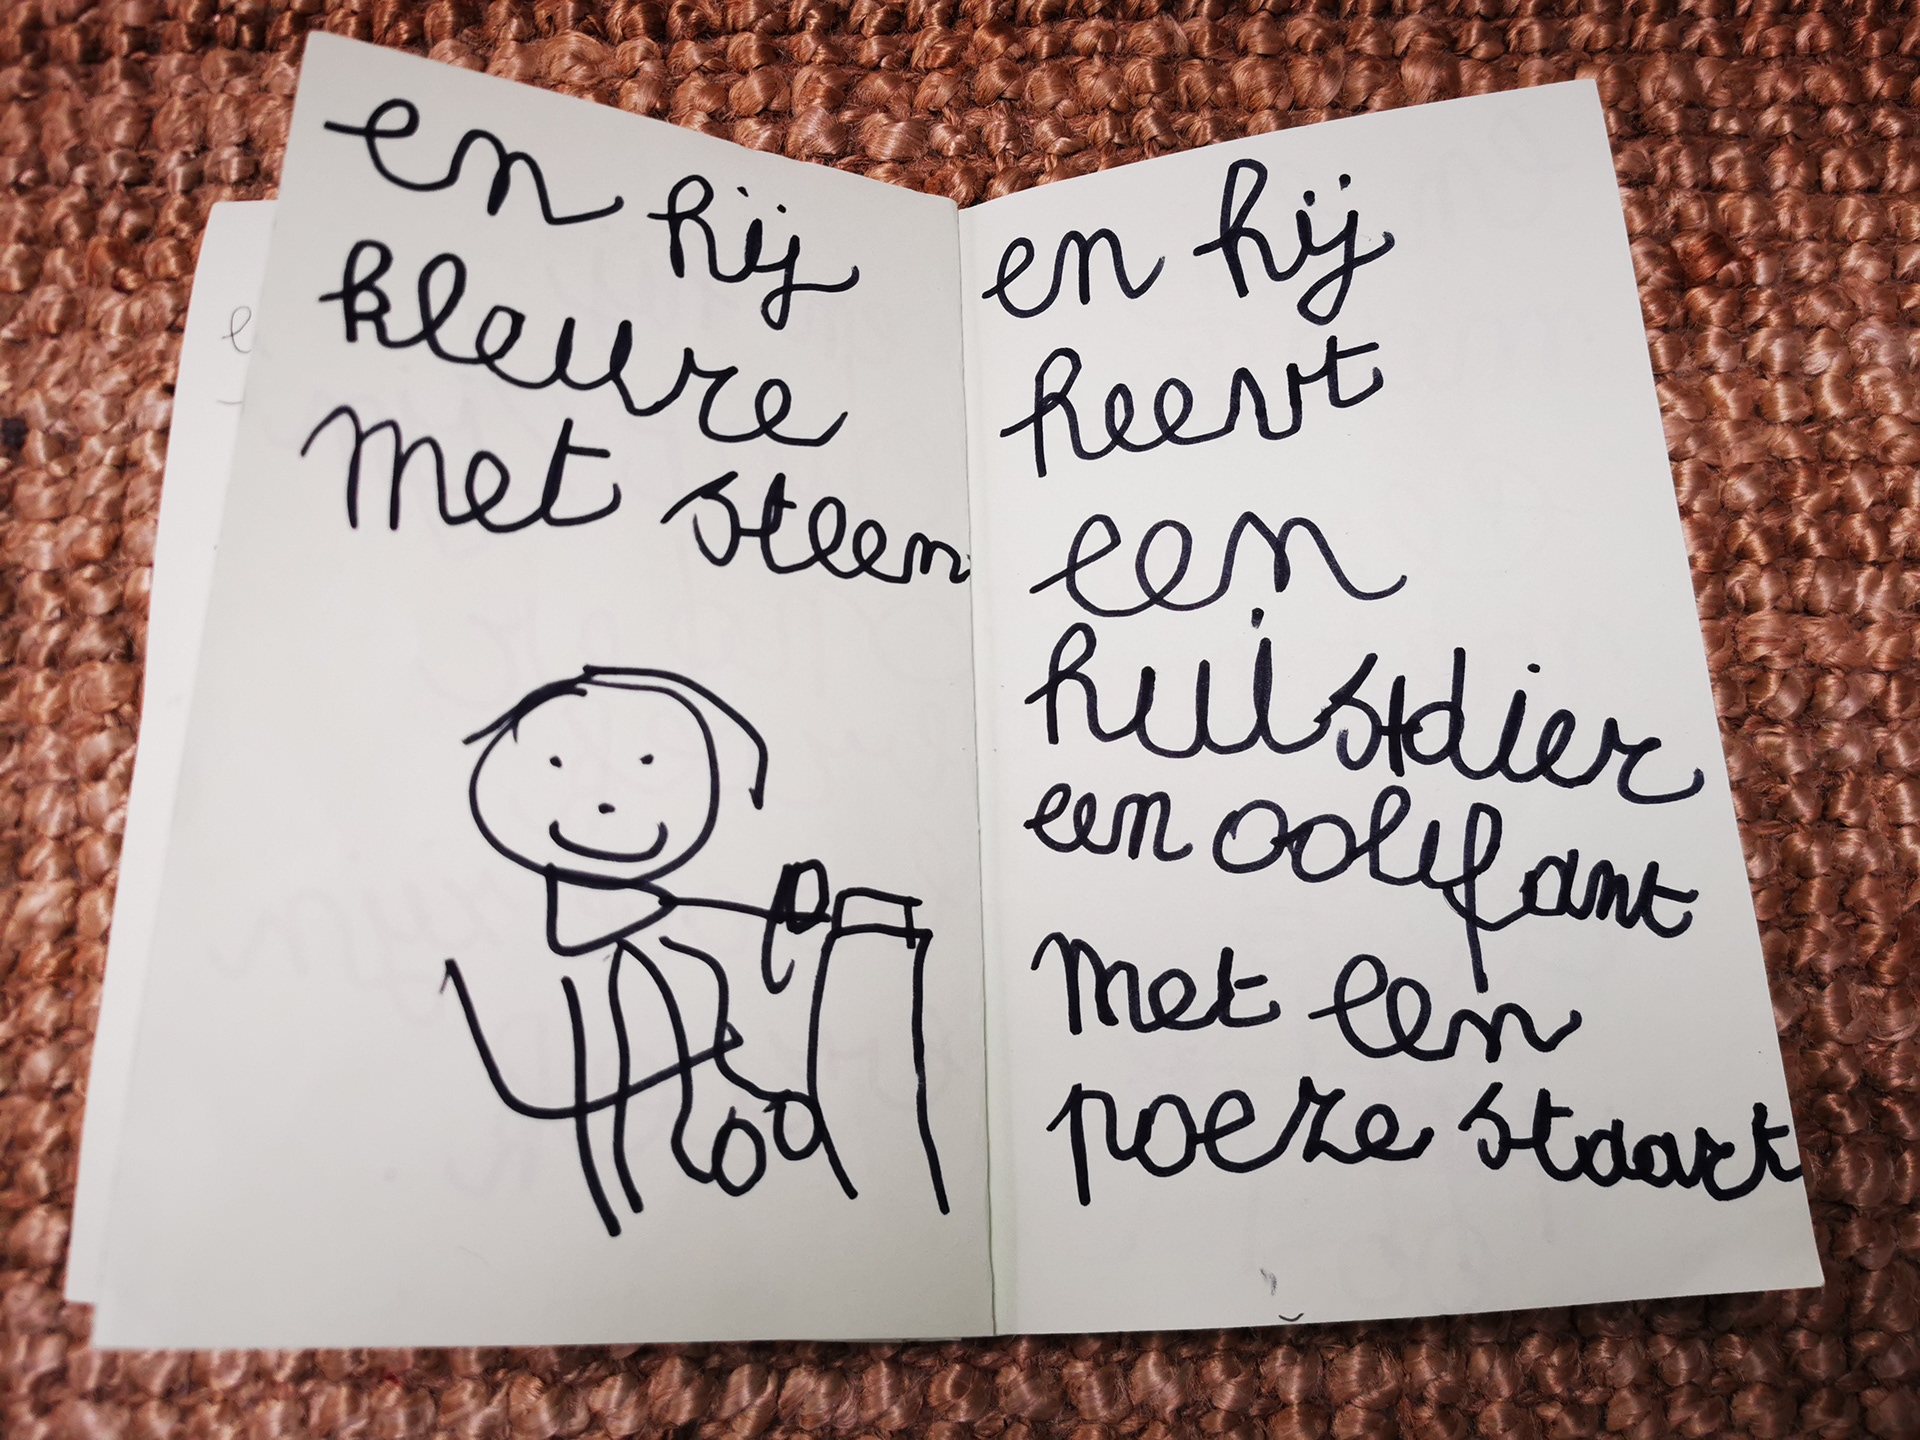 en hij
kleure
met steen
en hij
heevt
een
huistdier
een oolifant
met een
poeze staart